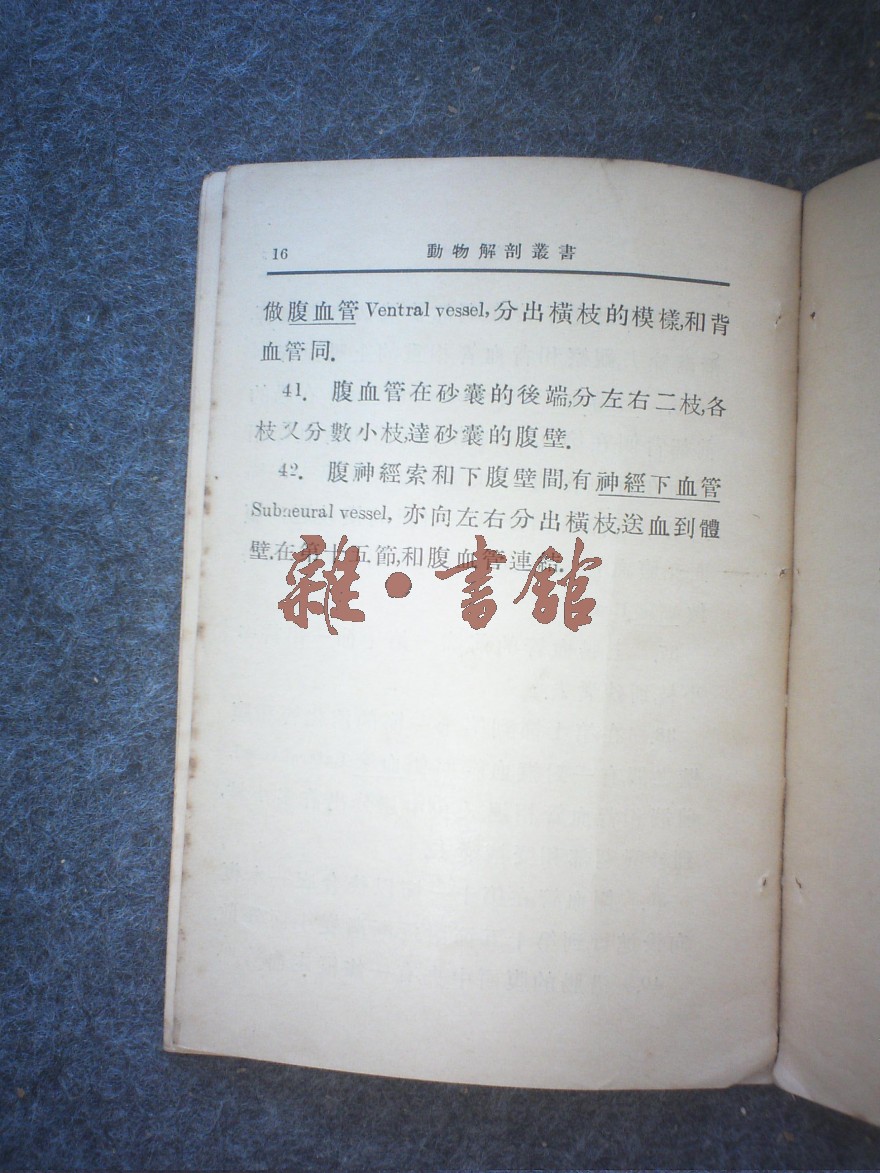 16 動物解剖叢書
做腹血管 Ventral vessel, 分出橫枝的模樣,和背
血管同.
41. 腹血管在砂囊的後端,分左右二枝,各
枝又分數小枝,達砂囊的腹壁.
42. 腹神經索和下腹壁間,有神經下血管
Subneural vessel, 亦向左右分出橫枝,送血到體
壁.在第十五節,和腹血管連結.
雜·書館